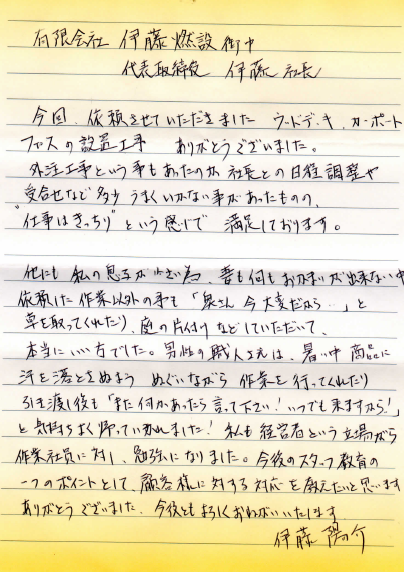 有限会社 伊藤燃設 御中
代表取締役 伊藤 社長
今回、依頼させていただきました ウッドデッキ、カーポート
フェンスの設置工事 ありがとうございました。
外注工事という事もあったのか 社長との日程調整や
受合せなど多少うまくいかない事があったものの、
"仕事はきっちり"という感じで 満足しております。
他にも 私の息子が小さい為、妻も何もおかまいが出来ない中
依頼した作業以外の事も「奥さん 今大変だから‥」と
草を取ってくれたり、庭の片付けなどしていただいて、
本当にいい方でした。男性の職人さんは、暑い中 商品に
汗を落とさぬよう ぬぐいながら 作業を行ってくれたり
引き渡し後も「また何かあったら言って下さい！いつでも来ますから！」
と気持ちよく帰っていかれました！私も経営者という立場がら
作業社員に対し、勉強になりました。今後のスタッフ教育の
一つのポイントとして、顧客様に対する対応を教えたいと思います
ありがとうございました。今後ともよろしくおねがいいたします
伊藤 陽介